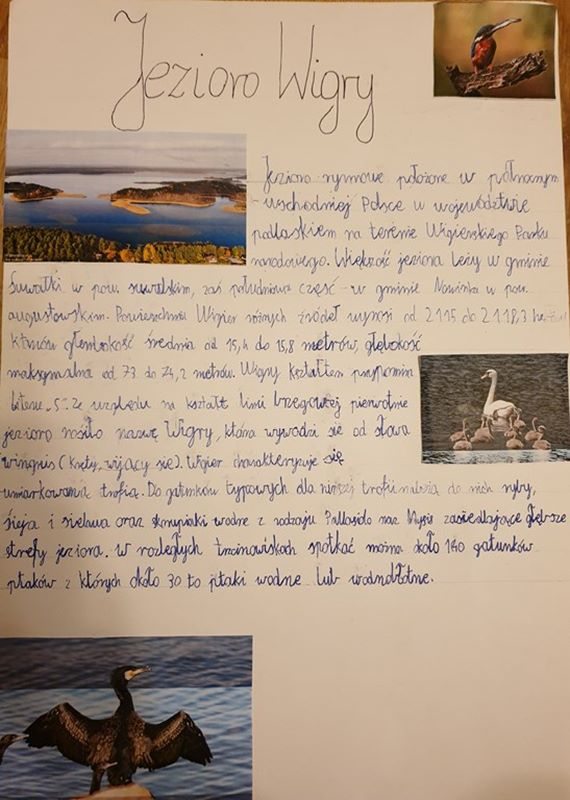 Jezioro Wigry
Jezioro rynnowe położone w północnym
-wschodniej Polsce w województwie
podlaskiem na terenie Wigierskiego Parku
narodowego. Większość jeziora leży w gminie
Suwałki w pow. suwalskim, zaś południowa część - w gminie Nowinka w pow.
augustowskim. Powierzchnia Wigier różnych źródeł wynosi od 2115 do 2118,3
średnia od 15,4 do 15,8 metrów, głębokość
maksymalna od 73 do 74,2 metrów. Wigry kształtem przypomina
literę „S". Ze względu na kształt linii brzegowej pierwotnie
jezioro nosiło nazwę Wigry, która wywodzi się od słowa
wingris (kręty, wijący się). Wigier charakteryzuje się
umiarkowana trofia. Do gatunków typowych dla niższej trofii należą do nich ryby,
sieja i sielawa oraz skorupiaki wodne z rodzaju oraz Mysis zasiedlające głębsze
strefy jeziora. w rozległych trzcinowiskach spotkać można około 140 gatunków
ptaków z których około 30 to ptaki wodne lub wodnobłotne.